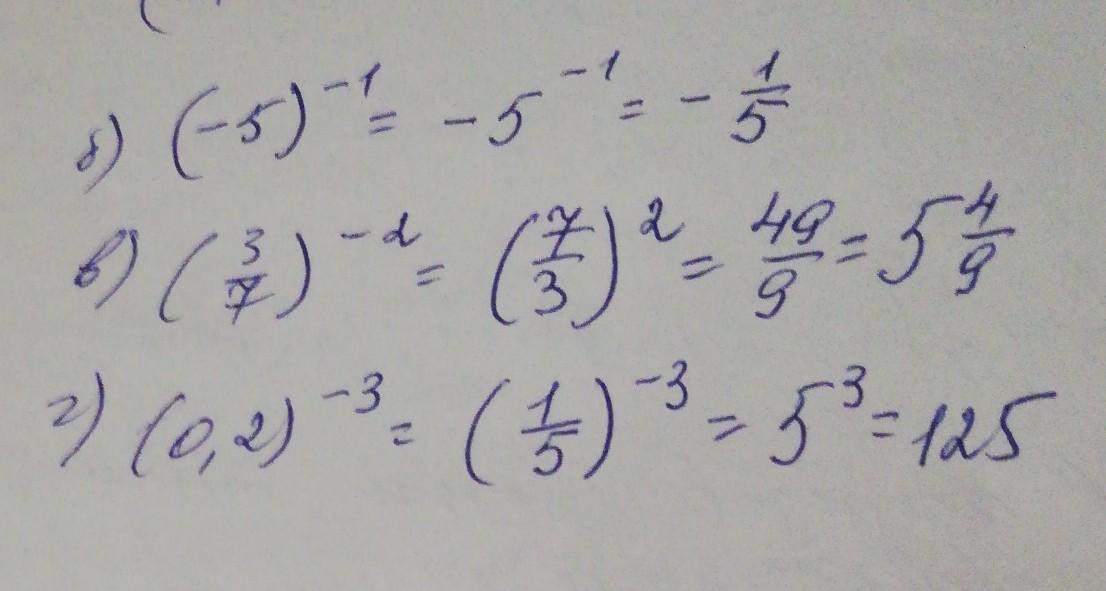 б) (-5)^{-1} = -5^{-1} = -\frac{1}{5}
в) (\frac{3}{7})^{-2} = (\frac{7}{3})^{2} = \frac{49}{9} = 5\frac{4}{9}
г) (0,2)^{-3} = (\frac{1}{5})^{-3} = 5^{3} = 125